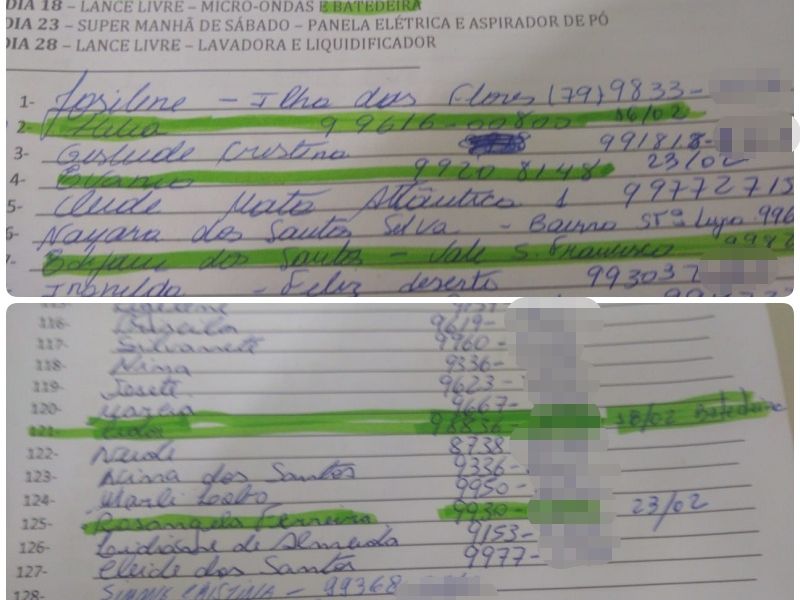 DIA 18 – LANCE LIVRE – MICRO-ONDAS E BATEDEIRA
DIA 23 – SUPER MANHÃ DE SÁBADO – PANELA ELÉTRICA E ASPIRADOR DE PÓ
DIA 28 – LANCE LIVRE – LAVADORA E LIQUIDIFICADOR
1- Josilene – Ilha das Flores (79) 9833-
2- 99616-00800 16/02
3- Gislaide Cristina 991818-
4- 9920 8148 23/02
5- Cleide Mata Atlântica 1 9977271
6- Nayara dos Santos Silva - Bairro Stª Luzia 996
7- dos Santos – Vale S. Francisco 998
Feliz deserto 993037
116- Priscila 9619-
117- Silvanete 9960-
118- Nina 9336-
119- Josete 9623-
120- Maria 9667-
121- 98836 18/02 Batedeira
122- Neide 8738
123- Nina dos Santos 9336-
124- Marli 9950-
125- Rosangela Ferreira 9930- 23/02
126- Leidiane de Almeida 9153-
127- Cleide dos Santos 9977-
128- CRISTINA – 99368